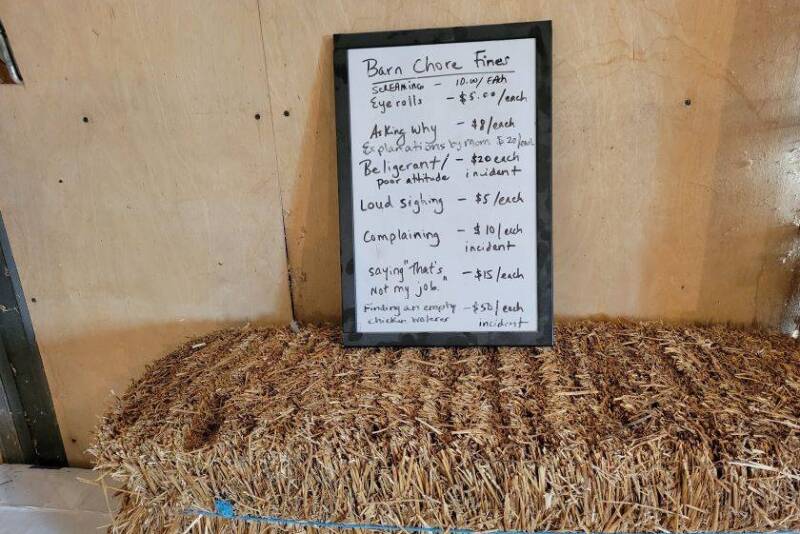 Barn Chore Fines
SCREAMING - 10.00/EACH
Eye rolls - $5.00/each
Asking Why - $8/each
Explanations by mom $20/each
Beligerant/ - $20 each
poor attitude incident
Loud sighing - $5/each
Complaining - $10/each
incident
saying "That's - $15/each
Not my job."
Finding an empty - $50/each
chicken waterer incident